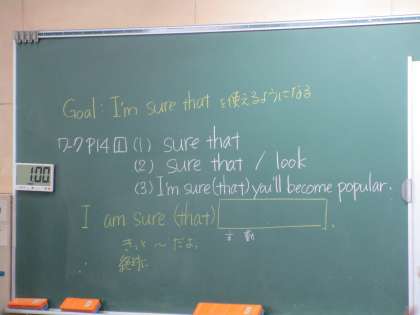 Goal: I'm sure that を使えるようになる
ワークP14 1 (1) sure that
(2) sure that / look
(3) I'm sure (that) you'll become popular.
1:00
I am sure (that) .
主 動
きっと 〜 だよ。
絶対に